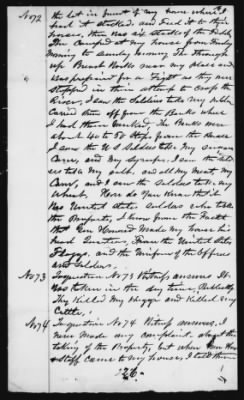 No 72 the lot in front of my house where I
had it stacked, and Fed it to their
horses, there was six stacks of the Fodder
They Camped at my house from Friday
Evening to Sunday Evening They
up Breast Works near my place and
was prepared for a Fight as they were
stopped in their attempt to Cross the
River, I saw the Soldiers take my
Carried them off from the Banks where
I had them banked, The Banks were
about 40 to 50 steps from the House
I saw the U S Soldiers take my
and my Syrup, I saw the
take my salt, and all my meat, my
Corn, and I saw the soldiers take my
How do you Know that it
was United States soldiers who take
the Property, I know from the Fact
that Gen Howard Made my house his
head Quarters, From the United States
Flags, and the Uniform of the Officers
and Soldiers.
No 73 To question No 73 Witness answers It
was taken in the day time, Publickly
They Killed My Hogs and Killed my
Cattle,
No 74 To question No 74 Witness answers, I
never Made my Complaint about the
taking of the Property, but when Gen How
& Staff came to my house, I told them
226